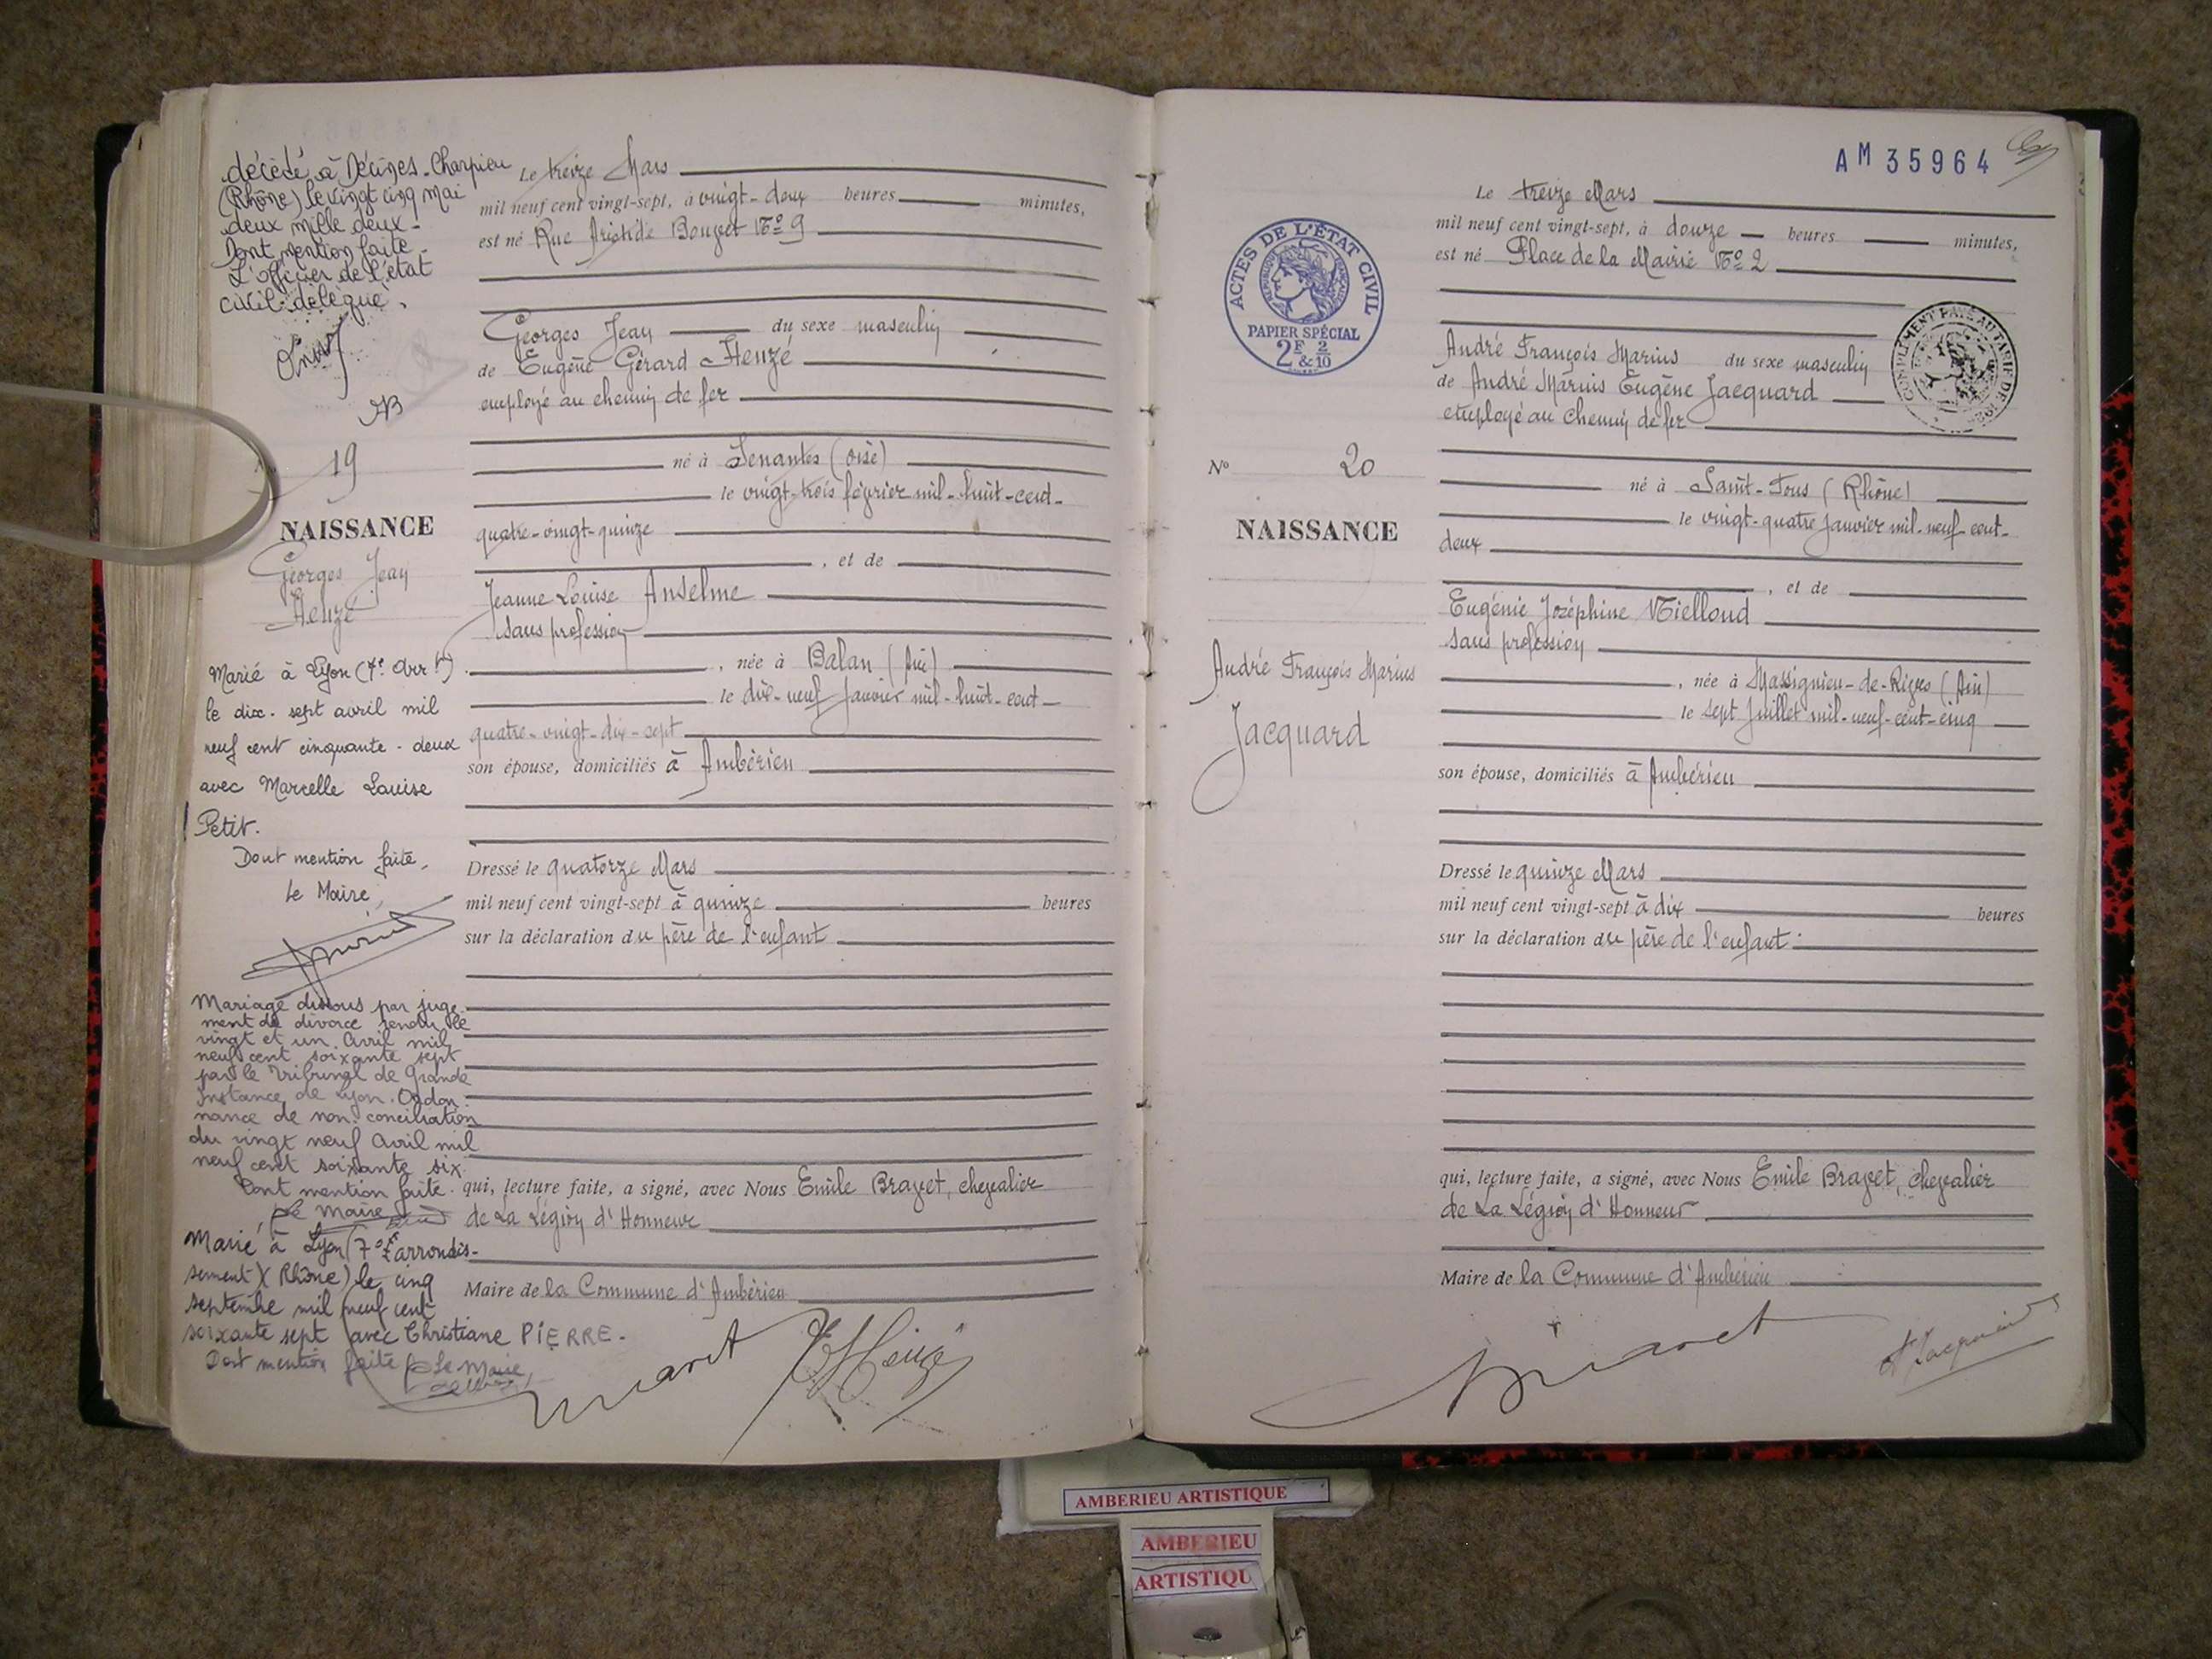 décédé à Décines-Charpieu
(Rhône) le vingt cinq mai
deux mille deux -
Dont mention faite -
L'officier de l'état
civil délégué.
19
NAISSANCE
Georges Jean
Heuzé
Marié à Lyon (7e Arrt)
le dix-sept avril mil
neuf cent cinquante-deux
avec Marcelle Louise
Petit.
Dont mention faite,
Le Maire,
Mariage dissous par juge-
ment de divorce rendu le
vingt et un Avril mil
neuf cent soixante sept
par le Tribunal de Grande
Instance de Lyon. Ordon-
nance de non conciliation
du vingt neuf Avril mil
neuf cent soixante six.
Dont mention faite.
Le Maire
Marié à Lyon (7e arrondis-
sement) (Rhône) le cinq
septembre mil neuf cent
soixante sept avec Christiane PIERRE.
Dont mention faite Le Maire,
Le treize Mars
mil neuf cent vingt-sept, à vingt-deux heures minutes,
est né Rue Aristide Bouvet No 9
Georges Jean du sexe masculin
de Eugène Gérard Heuzé
employé au chemin de fer
né à Senantes (Oise)
le vingt-trois février mil-huit-cent-
quatre-vingt-quinze
, et de
Jeanne Louise Anselme
sans profession
, née à Balan (Ain)
le dix-neuf Janvier mil-huit-cent-
quatre-vingt-dix-sept
son épouse, domiciliés à Ambérieu
Dressé le quatorze Mars
mil neuf cent vingt-sept à quinze heures
sur la déclaration du père de l'enfant
qui, lecture faite, a signé, avec Nous Emile Bravet, chevalier
de La Légion d'Honneur
Maire de la Commune d'Ambérieu
Heuzé
AM 35964
ACTES DE L'ÉTAT CIVIL
RÉPUBLIQUE FRANÇAISE
PAPIER SPÉCIAL
2F & 2/10
COMPLÉMENT PAYÉ AU TARIF DE
No 20
NAISSANCE
André François Marius
Jacquard
Le treize Mars
mil neuf cent vingt-sept, à douze heures minutes,
est né Place de la Mairie No 2
André François Marius du sexe masculin
de André Marius Eugène Jacquard
employé au Chemin de fer
né à Saint-Fons (Rhône)
le vingt-quatre Janvier mil-neuf-cent-
deux
, et de
Eugénie Joséphine Nielloud
sans profession
, née à Massignieu-de-Rives (Ain)
le sept Juillet mil-neuf-cent-cinq
son épouse, domiciliés à Ambérieu
Dressé le quinze Mars
mil neuf cent vingt-sept à dix heures
sur la déclaration du père de l'enfant
qui, lecture faite, a signé, avec Nous Emile Bravet, chevalier
de La Légion d'Honneur
Maire de la Commune d'Ambérieu
Bravet
Jacquard
AMBERIEU ARTISTIQUE
AMBERIEU
ARTISTIQU